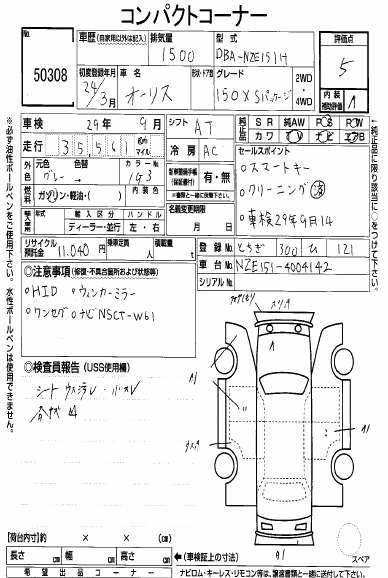 コンパクトコーナー
50308
車歴(自家用以外は記入) 排気量 型式 評価点
1500 DBA-NZE151H 5
初度登録年月 車名 形状・ドア数 グレード 2WD・4WD
24/3月 オーリス 150X Sパッケージ
内装 補助評価 1
車検 29年 9月 シフト AT 純正品 SR 純AW PS PW
カワ TV ナビ エアB
走行 35511 Km マイル 冷房 AC セールスポイント
外色 元色 色替 カラーNo.
グレー → 1G3
新車時保証書 (保証書付) 有・無
※書類と一緒に後送下さい。
○スマートキー
燃料 ガソリン・軽油・( ) 内装色
名義変更期限
○クリーニング済
輸入車 年式 輸入区分 ハンドル 月 日
年 ディーラー・並行 左・右
○車検29年9月14
リサイクル預託金 11,040円 乗車定員 人 積載量 t
登録No. とちぎ 300 ひ 121
車台No. NZE151-4004142
シリアルNo.
◎注意事項(修復・不具合箇所および状態等)
○HID ○ウィンカーミラー
○ワンセグ ○ナビNSCT-W61
◎検査員報告(USS使用欄)
シート
A1
A1
A1
【荷台内寸】 × × (cm)
スペア
長さ cm 幅 cm 高さ cm ←(車検証上の寸法)
希望出品コーナー
ナビロム・キーレス・リモコン等は、譲渡書類と一緒に送付して下さい。
※必ず油性ボールペンをご使用下さい。水性ボールペンは使用できません。
※純正品に限り該当に○をつけて下さい。